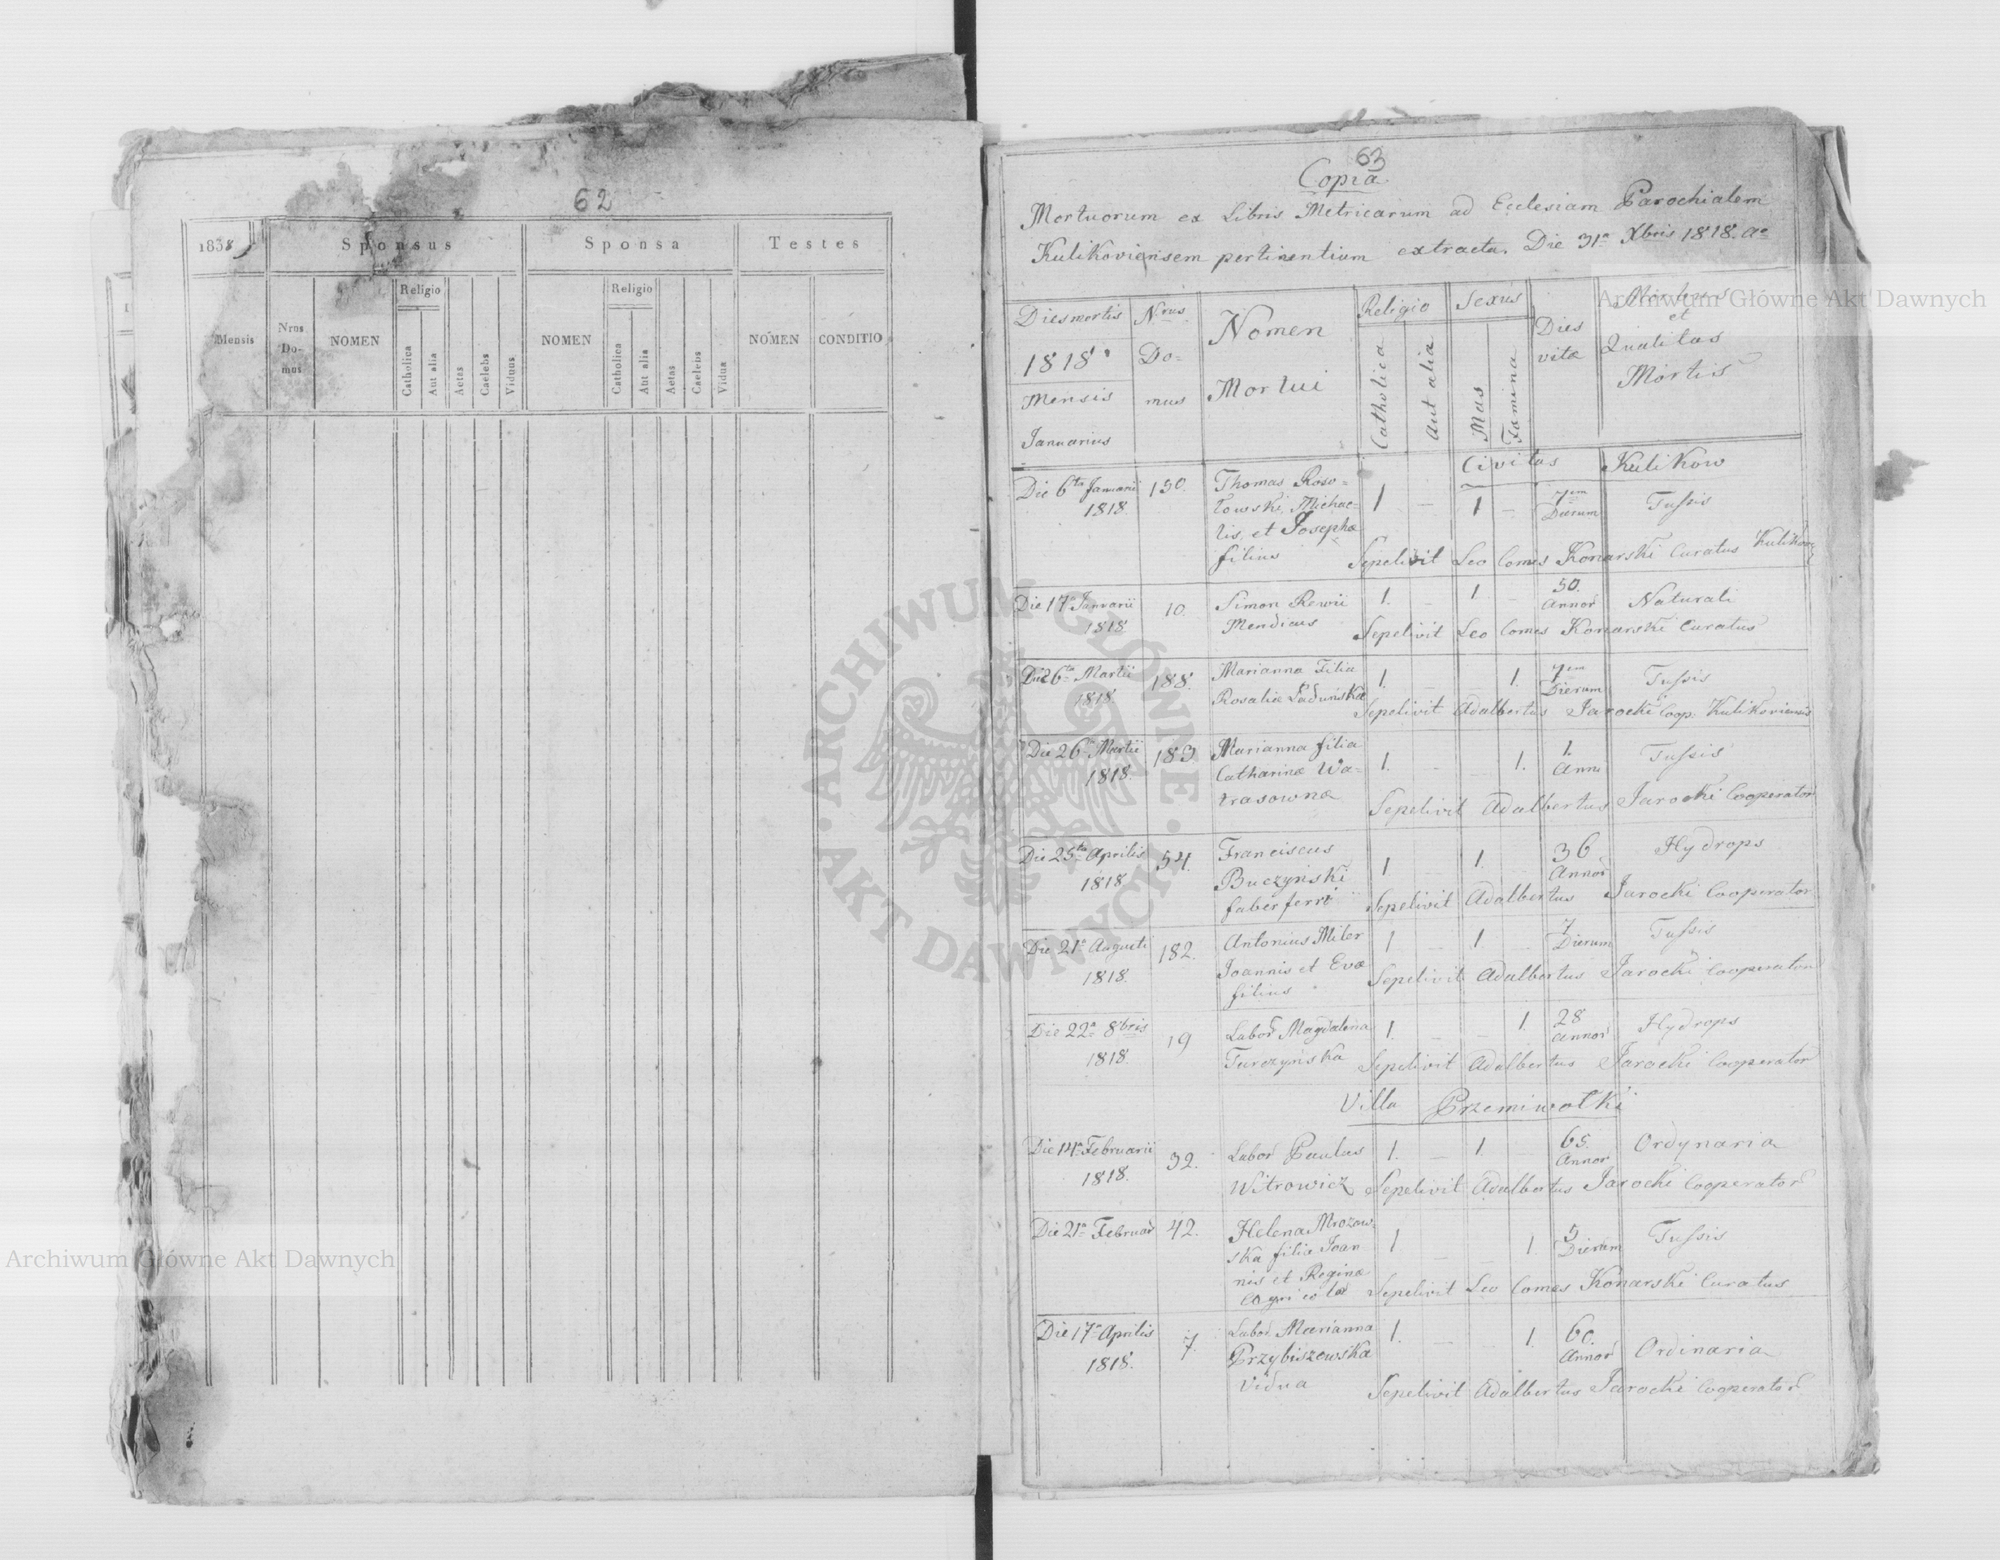 62
1838
Sponsus
Sponsa
Testes
Mensis
Nrus
Do-
mus
NOMEN
Religio
Catholica
Aut alia
Aetas
Caelebs
Viduus
NOMEN
Religio
Catholica
Aut alia
Aetas
Caelebs
Vidua
NOMEN
CONDITIO
63
Copia
Mortuorum ex Libris Metricarum ad Ecclesiam Parochialem
Kulikoviensem pertinentium extracta. Die 31a Xbris 1818. Ao
Dies mortis
1818
Mensis
Januarius
Nrus
Do-
mus
Nomen
Mortui
Religio
Catholica
Aut alia
Sexus
Mas
Famina
Dies
vitæ
Morbus
et
Qualitas
Mortis
Civitas Kulikow
Die 6ta Januarii
1818
130.
Thomas Roso-
towski, Michae-
lis, et Josephæ
filius
1 – 1 –
7em
Dierum
Tussis
Sepelivit Leo Comes Konarski Curatus
Die 17a Januarii
1818
10.
Simon Rewii
Mendicus
1. – 1. –
50.
Annor
Naturali
Sepelivit Leo Comes Konarski Curatus
Die 26ta Martii
1818.
188.
Marianna Filia
Rosaliæ Padunskæ
1. – – 1.
7em
Dierum
Tussis
Sepelivit Adalbertus Jarocki Coop. Kulikoviensis
Die 26a Martii
1818.
183
Marianna filia
Catharinæ Wa-
trasownæ
1. – – 1.
1.
Anni
Tussis
Sepelivit Adalbertus Jarocki Cooperator
Die 25ta Aprilis
1818
54.
Franciscus
Buczyński
faber ferri
1 – 1. –
36
Annor
Hydrops
Sepelivit Adalbertus Jarocki Cooperator
Die 21a Augusti
1818.
182.
Antonius Miler
Joannis et Evæ
filius
1 – 1. –
7
Dierum
Tussis
Sepelivit Adalbertus Jarocki Cooperator
Die 22a 8bris
1818.
19
Labor Magdalena
Turczyńska
1. – – 1.
28
annor
Hydrops
Sepelivit Adalbertus Jarocki Cooperator
Villa Przemiwołki
Die 14a Februarii
1818.
32.
Labor Paulus
Witrowicz
1. – 1.
65.
Annor
Ordynaria
Sepelivit Adalbertus Jarocki Cooperator
Die 21a Februar
42.
Helena Mrozow-
ska filia Joan
nis et Reginæ
1. – – 1.
5
Dierum
Tussis
Sepelivit Leo Comes Konarski Curatus
Die 17a Aprilis
1818.
7.
Labor Marianna
Przybiszewska
Vidua
1. – 1.
60.
Annor
Ordinaria
Sepelivit Adalbertus Jarocki Cooperator
Archiwum Główne Akt Dawnych
Archiwum Główne Akt Dawnych
ARCHIWUM GŁÓWNE
AKT DAWNYCH